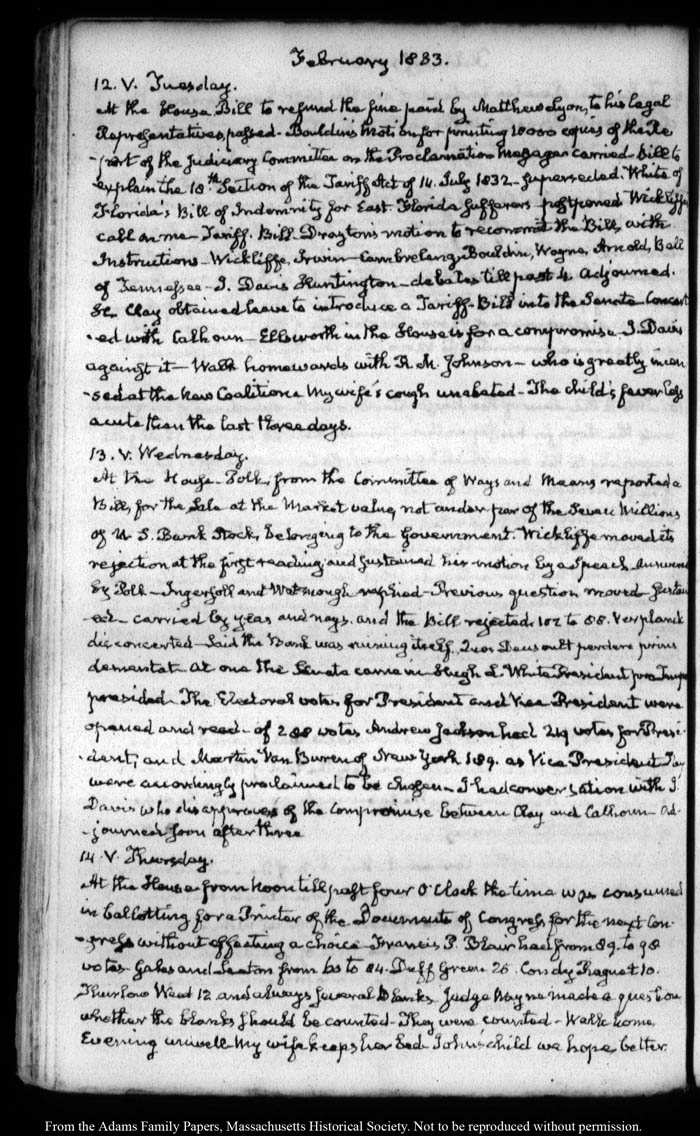 February 1833.
12. V. Tuesday.
At the House Bill to refund the fine paid by Matthew Lyon, to his legal
Representatives passed - Bouldin's motion for printing 10000 copies of the Re
-port of the Judiciary Committee on the Proclamation Message carried - Bill to
explain the 18th Section of the Tariff Act of 14. July 1832 - superseded. White of
Florida's Bill of Indemnity for East Florida sufferers - postponed Wickliffe
call on me - Tariff. Bill Drayton's motion to recommit the Bill, with
Instructions - Wickliffe, Irwin - Cambreleng, Bouldin, Wayne, Arnold, Bell
of Tennessee - J. Davis Huntington - debates till past 4. Adjourned.
H. Clay obtained leave to introduce a Tariff Bill into the Senate concert
-ed with Calhoun - Ellsworth in the House is for a compromise J. Davis
against it - Walk homewards with R. M. Johnson - who is greatly incen
-sed at the new Coalition My wife's cough unabated - The child's fever less
acute than the last three days.
13. V. Wednesday.
At the House - Polk, from the Committee of Ways and Means reported a
Bill, for the Sale at the Market value, not under par of the Seven Millions
of U. S. Bank Stock, belonging to the Government. Wickliffe moved its
rejection at the first reading, and sustained his motion by a Speech answered
by Polk - Ingersoll and Watmough replied - Previous question moved - sustain
ed - carried by yeas and nays. and the Bill rejected 102 to 88. Verplanck
disconcerted - said the Bank was ruining itself. Quos Deus vult perdere prius
dementat At one the Senate came in Hugh L. White President pro Tempe
presided. The Electoral votes for President and Vice President were
opened and read - of 288 votes Andrew Jackson had 219 votes for Presi-
-dent; and Martin Van Buren of New York 189. as Vice President They
were accordingly proclaimed to be chosen - I had conversation with J.
Davis who disapproves of the compromise between Clay and Calhoun - Ad-
-journed soon after three
14. V. Thursday.
At the House from Noon till past four O'Clock the time was consumed
in ballotting for a Printer of the Documents of Congress for the next Con
-gress without effecting a choice - Francis P. Blair had from 89. to 98
votes - Gales and Seaton from to 84. Duff Green 26. Condy Raguet 10.
Thurlow Weed 12 and always several blanks Judge Wayne made a question
whether the blanks should be counted - They were counted - Walk home.
Evening unwell My wife keeps her bed John's child we hope better.
From the Adams Family Papers, Massachusetts Historical Society. Not to be reproduced without permission.